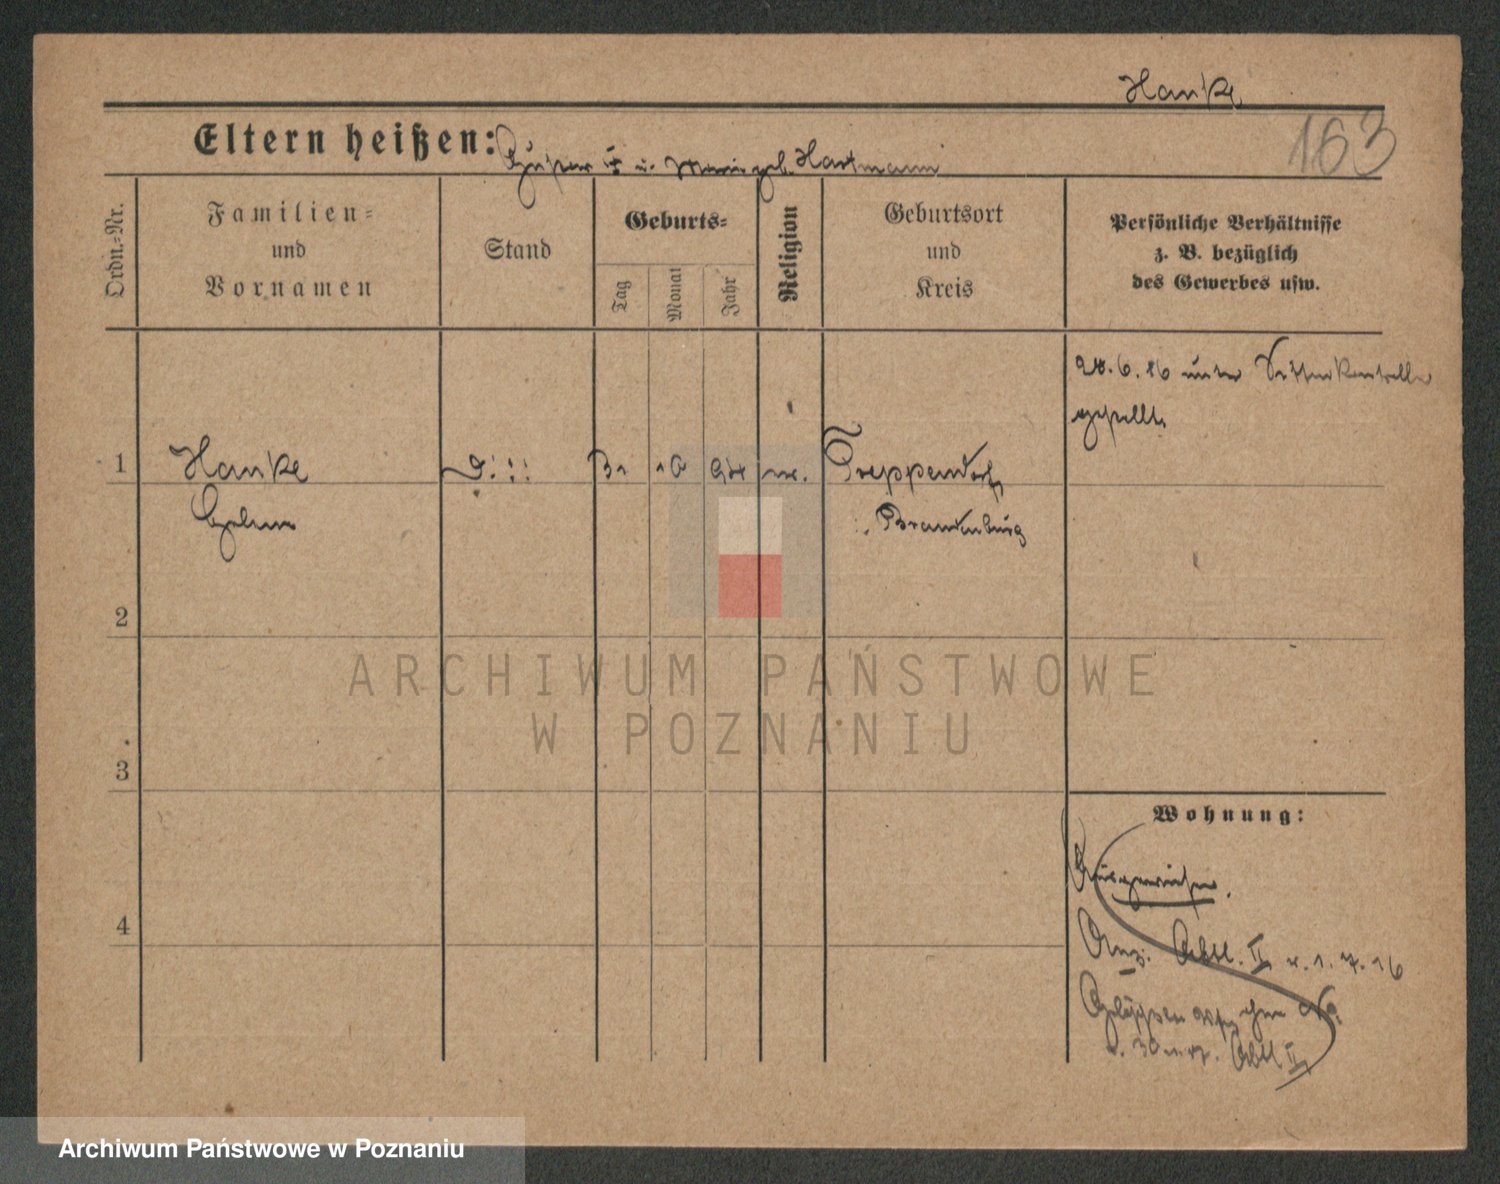 Hanke
163
Eltern heißen: Gustav † u. Marie geb. Hartmann
Ordn.=Nr.
Familien=
und
Vornamen
Stand
Geburts=
Tag
Monat
Jahr
Religion
Geburtsort
und
Kreis
Persönliche Verhältnisse
z. B. bezüglich
des Gewerbes usw.
1
Hanke
10
Treppendorf
Brandenburg
6. 16 unter Sittenkontrolle
gestellt.
2
3
4
Wohnung:
Anz. Abtl. II v. 1. 7. 16
Abtl II
ARCHIWUM PAŃSTWOWE
W POZNANIU
Archiwum Państwowe w Poznaniu